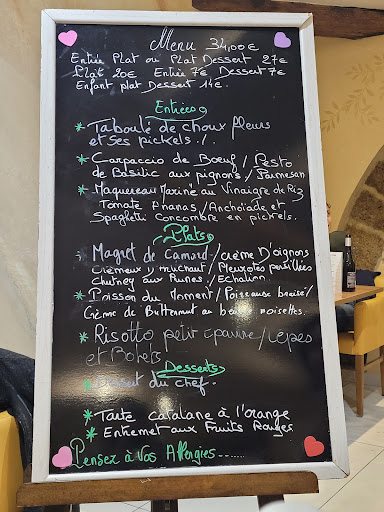 Menu 34,00€
Entrée Plat ou Plat Dessert 27€
Plat 20€ Entrée 7€ Dessert 7€
Enfant plat Dessert 14€.
Entrées
* Taboulé de choux fleurs
et ses pickels./.
* Carpaccio de Boeuf / Pesto
de Basilic aux pignons / Parmesan
* Maquereau Mariné au Vinaigre de Riz
Tomate Ananas / Anchoiade et
Spaghetti Concombre en pickels.
Plats
* Magret de canard / crème d'oignons
Crémeux / Pleurotes persillées
Chutney aux Prunes / Echalion
* Poisson du Moment / Poireaux braisé /
Crème de Butternut au beurre noisettes.
* Risotto petit epautre / cèpes
et Bolets
Desserts
* Dessert du chef.
* Tarte catalane à l'orange
* Entremet aux Fruits Rouges
Pensez à Vos Allergies......